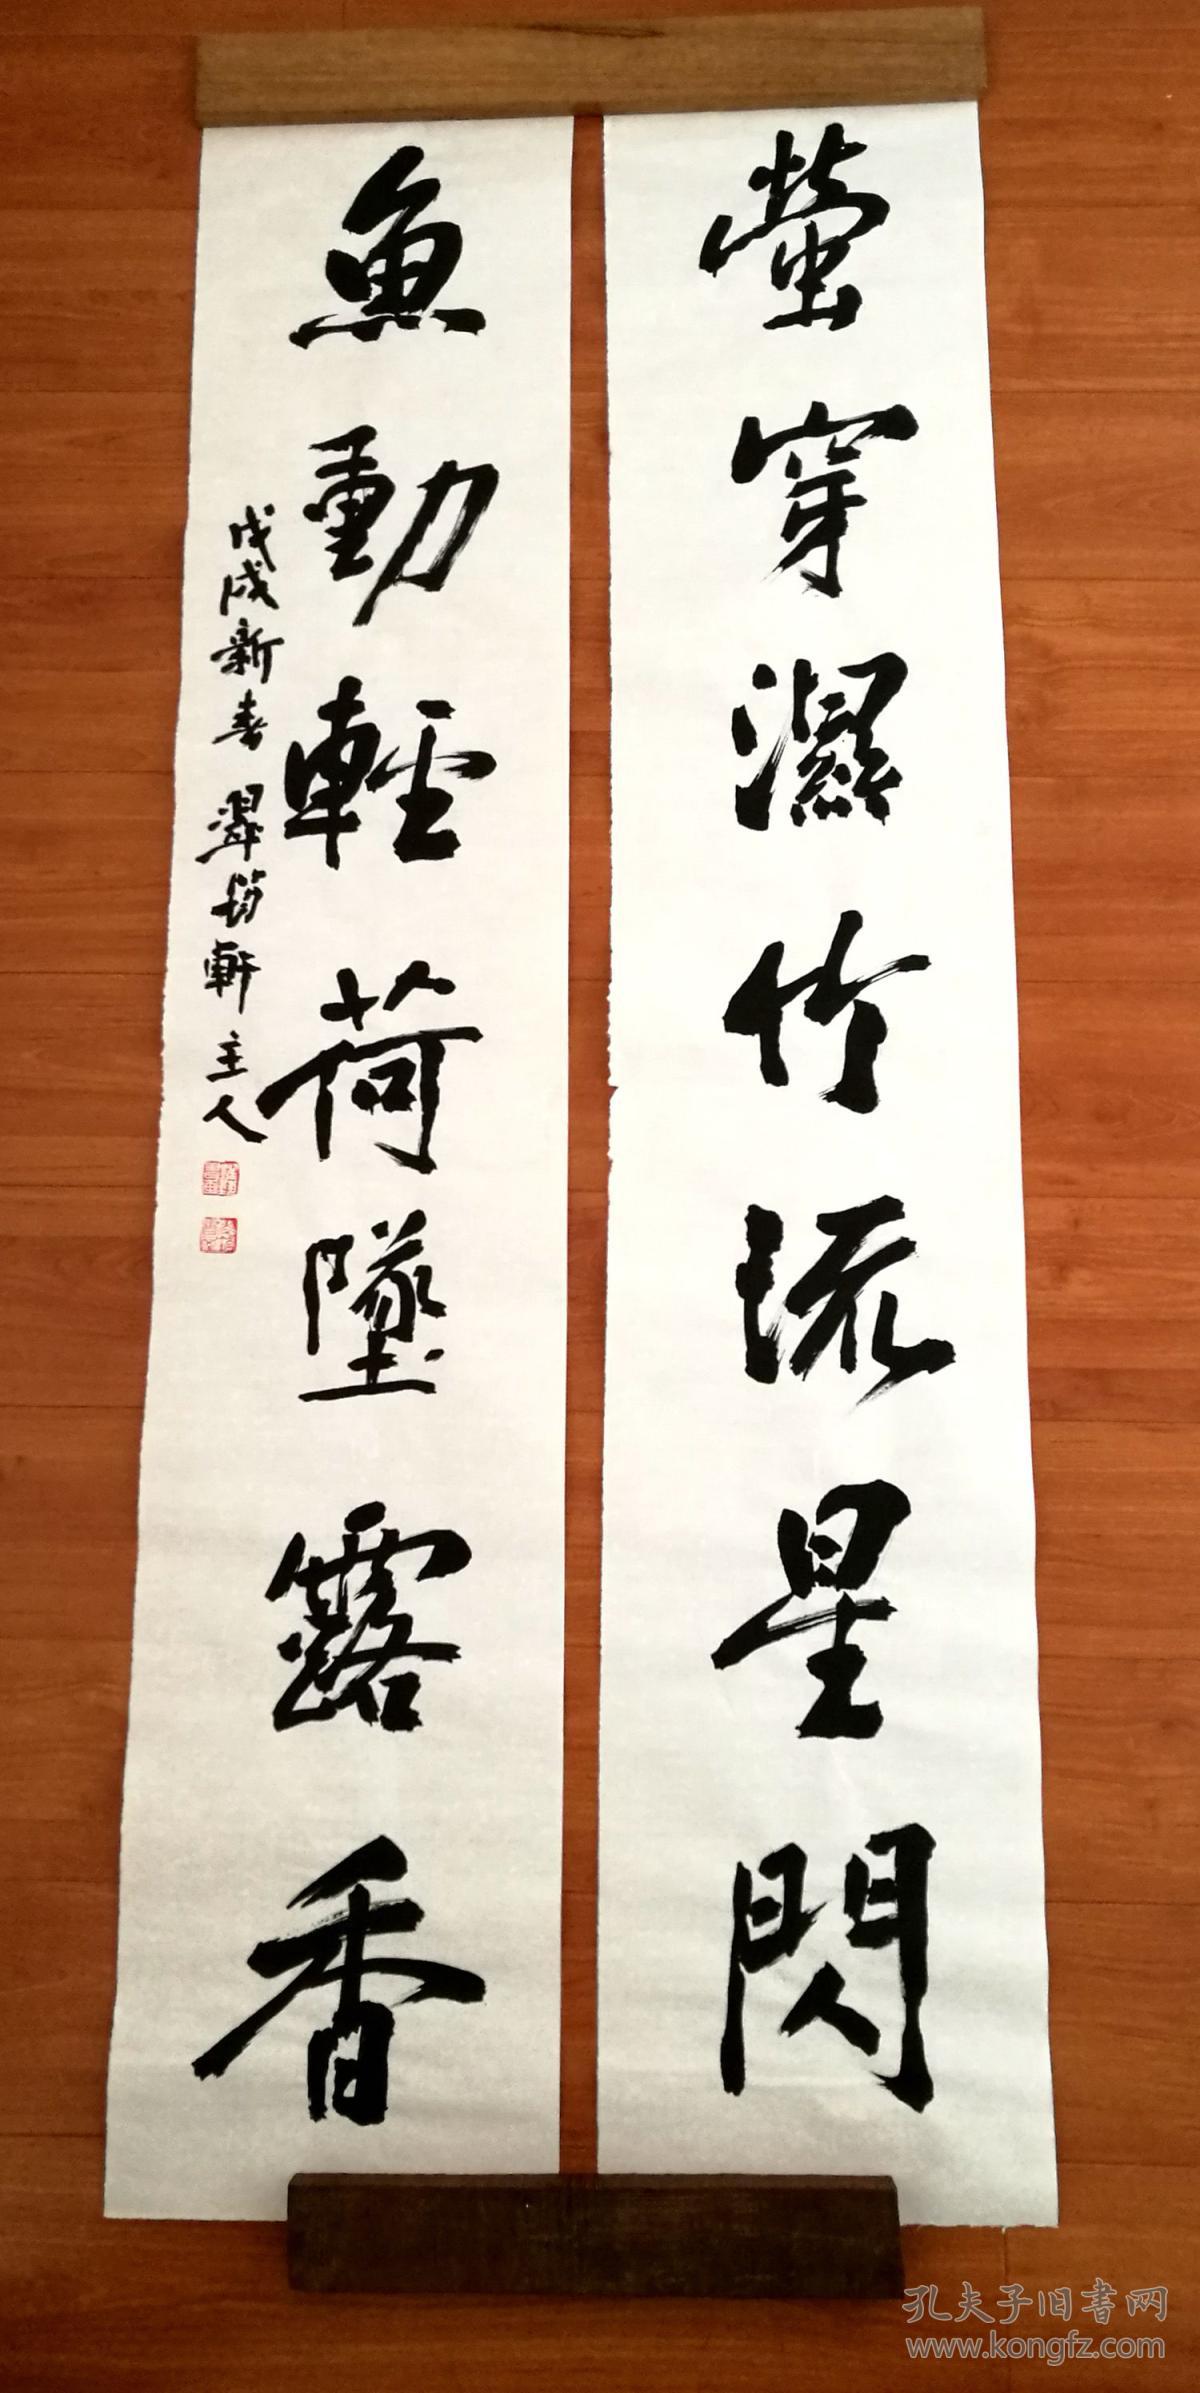 螢穿濕竹流星閃
魚動輕荷墜露香
戊戌新春 翠竹軒主人
孔夫子旧书网
www.kongfz.com